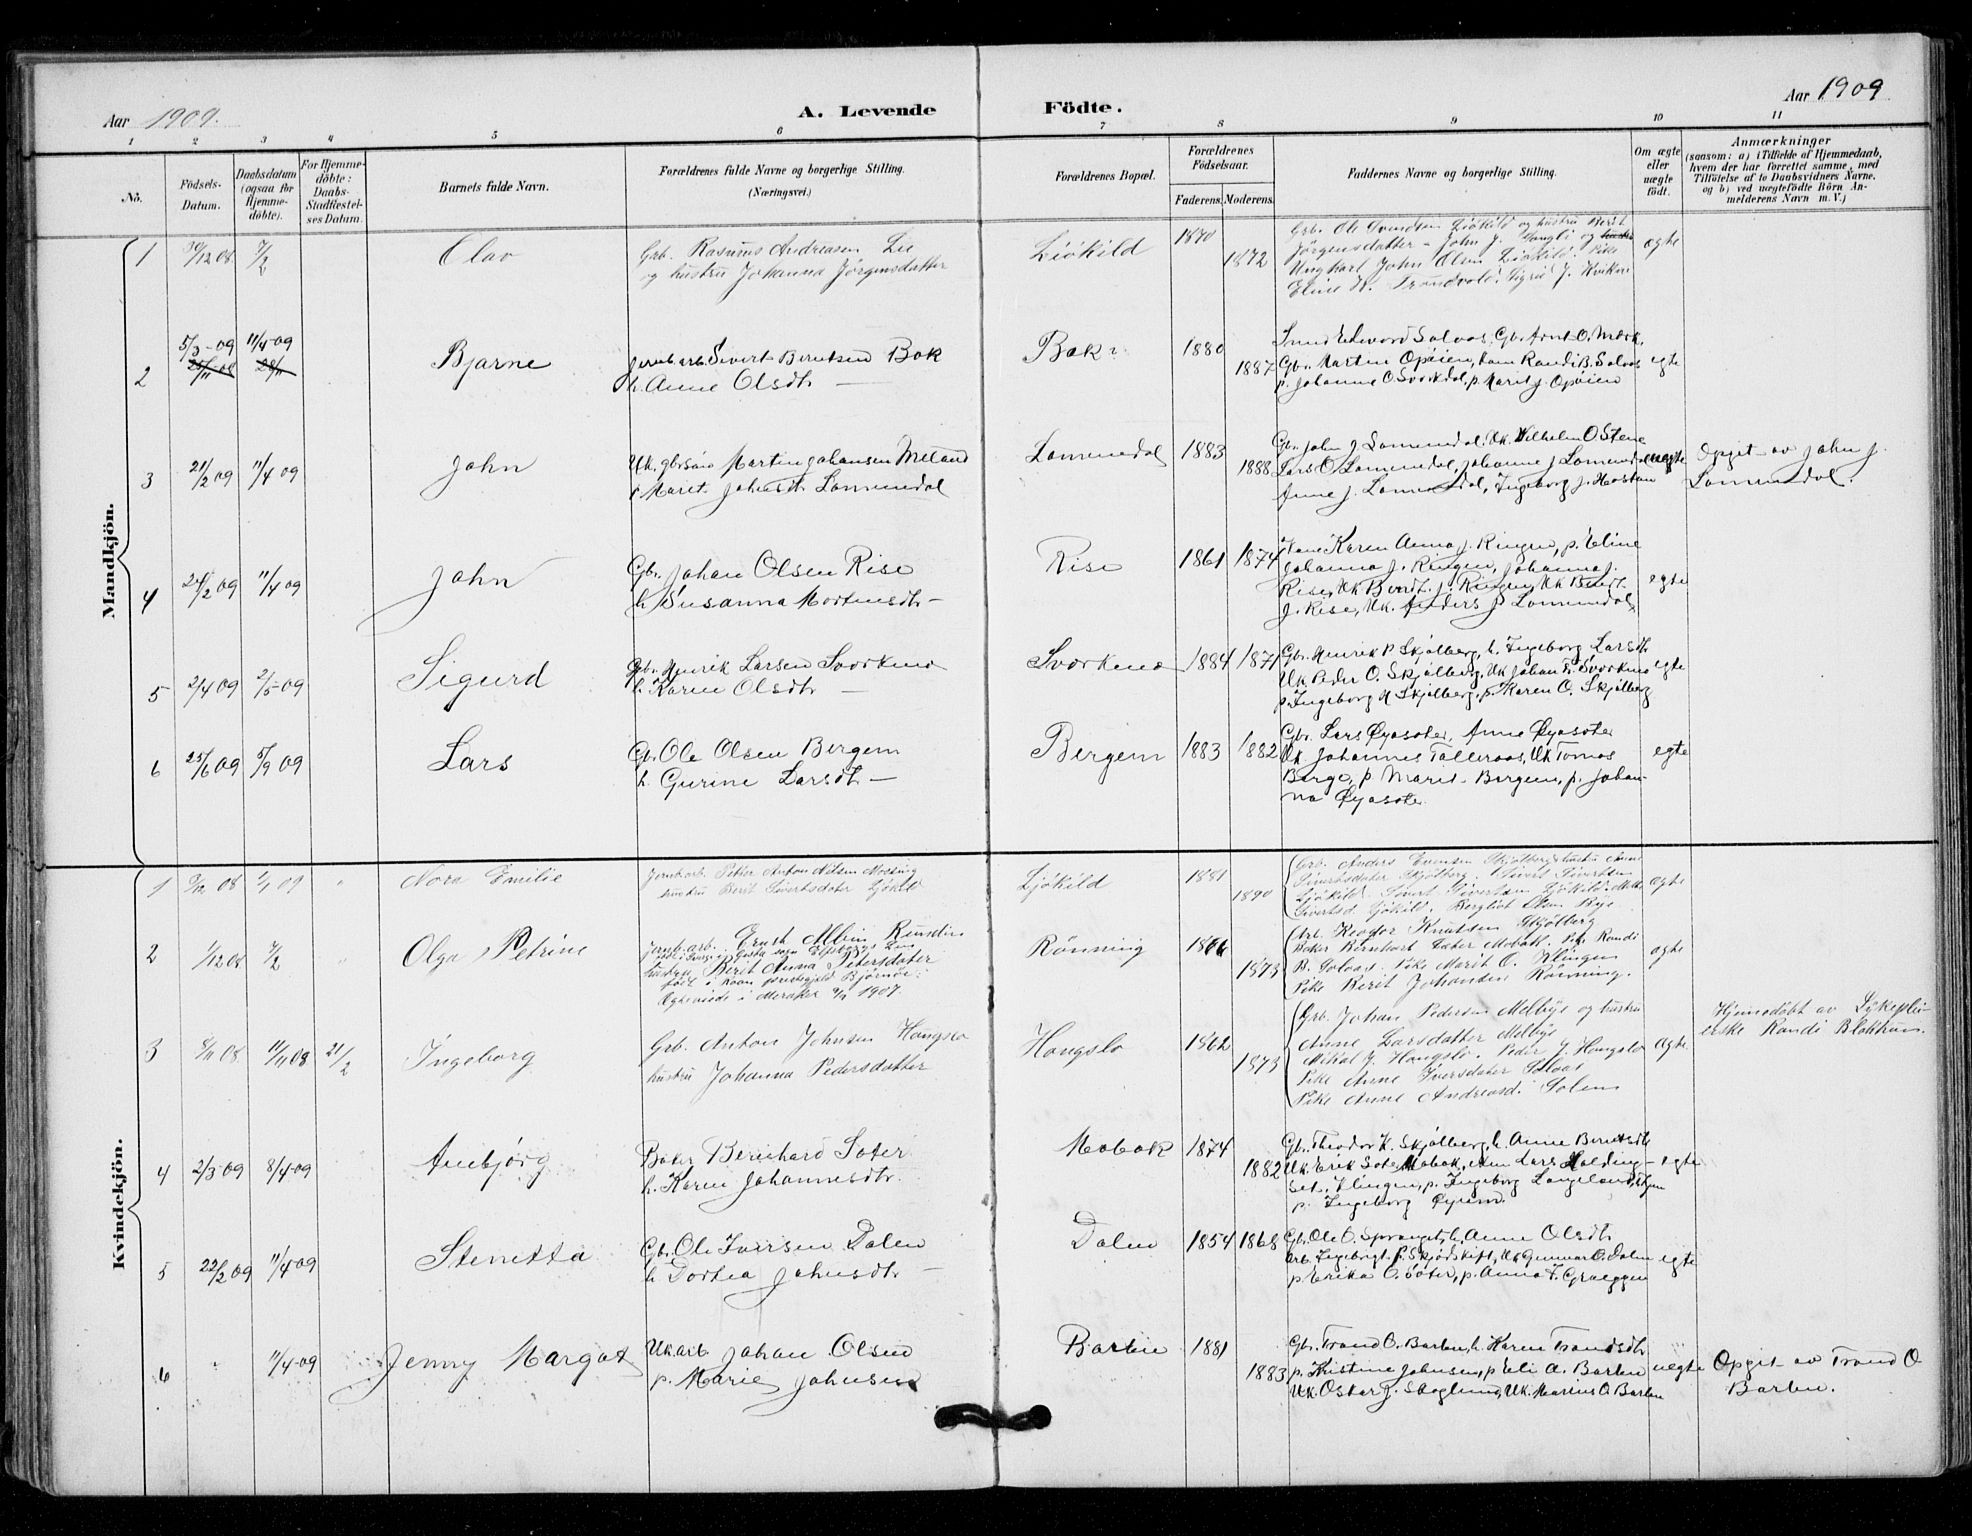 Aar 1909.
A. Levende
Födte.
Aar 1909
1 2 3 4 5 6 7 8 9 10 11
No.
Födsels-
Datum.
Daabsdatum
(ogsaa for
Hjemme-
döbte).
For Hjemme-
döbte:
Daabs-
Stadfæstel-
ses Datum.
Barnets fulde Navn.
Forældrenes fulde Navne og borgerlige Stilling.
(Næringsvei.)
Forældrenes Bopæl.
Forældrenes
Födselsaar.
Faderens. Moderens.
Faddernes Navne og borgerlige Stilling.
Om ægte
eller
uægte
födt.
Anmærkninger
(saasom: a) i Tilfælde af Hjemmedaab,
hvem der har forrettet samme, med
Tilföielse af to Daabsvidners Navne.
og b) ved uægtefödte Börn An-
melderens Navn m. V.)
Mandkjön.
1 30/12 08 7/2 Olav
Grb. Rasmus Andreasen Lie
og hustru Johanna Jørgensdatter
Liökild 1870 1872
Jörgensdatter - John J.
Ungkarl John Olsen Liökild. Pike
ægte
2 5/3-09 11/4-09 Bjarne
Jernb.arb. Sivert Berntsen Bak
h. Anne Olsdtr
Bak 1880 1887
Smed Edward Solvas, Gb. Arnt O. Mærk,
Gb. Martin Opöien, kone Randi B. Solvas
p. Johanne O. Svorkdal, p. Marit J. Opöien
egte
3 21/2 09 11/4 09 John
Uk. gbrsøn Martin Johansen Meland
Marit Johnsdtr Lomundal
Lomundal 1883 1888
Gb. John J Lomundal, Uk. Vilhelm O Stene
Lars O Lomundal, Johanne J Lomundal
Anne J. Lomundal, Ingeborg J. Hostan
uegte
Opget av John J.
Lomundal.
4 24/2 09 11/4 09 John
Gb. Johan Olsen Rise
h. Susanna Mortensdtr
Rise 1861 1874
Kone Karen Anna J. Ringen, p. Eline
Johanna J. Ringen, Johanna J.
Rise, Uk Berndt J. Ringen, Uk Berdt
J. Rise, Uk. Anders J Lomundal
egte
5 2/4 09 2/5-09 Sigurd
Gb. Henrik Larsen Svorkmo
h. Karen Olsdtr
Svorkmo 1884 1871
Gb. Henrik P Skjölberg, h. Ingeborg Larsdtr
Uk Peder O. Skjölberg, Uk Johan Fr. Svorkmo
p. Ingeborg H Skjölberg, p. Karen O. Skjölberg
egte
6 25/6 09 5/9 09 Lars
Gb. Ole Olsen Bergem
h. Gurine Larsdtr
Bergem 1883 1882
Gb. Lars Øyasæter, Anne Øyasæter
Uk. Johannes Talleraas, Uk Tomas
Berge, p Marit Bergem, p. Johan-
na Øyasæter
egte
Kvindekjön.
1 08 1/1 09 Nora Emilie
Jernb.arb. Peter Anton Nilsen Mossing
hustru Berit Sivertsdatter Ljökild
Ljökild 1881 1890
Grb. Anders Evensen Skjölberg & hustru Anne
Sivertsdatter Skjölberg. Sivert Sivertsen
Ljökild. Sivert Sivertsen Ljökild.
Sivertsd. Ljökild. Bergliot Olsen Bye
ægte
2 1/12 08 7/2 Olga Petrine
Jernb.arb. Ernst Albin Rundin
hustru Berit Anna Petersdatter
Ægteviede i Meraker 1907.
Rönning 1866 1873
Arb. Teodor Knutsen Skjölberg
Baker Bernhart Sæter Mobakk. Pike Randi
B. Solvas. Pike Marit O. Klingen
Pike Berit Johansen Rönning.
ægte
3 8/11 08 11/11 08 21/2 Ingeborg
Grb. Anton Johnsen Hongslo
hustru Johanna Pedersdatter
Hongslo 1862 1873
Grb. Johan Pedersen Melbye og hustru
Anne Larsdatter Melbye
Mikal J. Hongslo. Peder J. Hongslo
Pike Anne Iversdatter Solvas
Pike Anne Andreasd. Solem
ægte
Hjemmedöbt av Sykeplei-
erske Randi Blokhum.
4 2/3-09 8/4-09 Annbjörg
Baker Bernhard Sæter
h. Karen Johannesdtr.
Mobak 1874 1882
Gb. Theodor K. Skjölberg, h. Anne Berntsdtr
Uk. Erik Sæter Mobak, Lars Holding
Klingen, p. Ingeborg
p. Ingeborg Øyum.
egte
5 22/2 09 11/4 09 Stenetta
Gb. Ole Iversen Dalen
h Dortea Johnsdtr
Dalen 1854 1868
Gb. Ole O. Sprauget, h. Anne Olsdtr
Arb. Ingebrigt P. Skjödskift, Uk Gunnar O. Dalen
p. Erika O. Sæter, p. Anna F. Græggen
egte
6 " 11/4-09 Jenny Margot
Uk. arb. Johan Olsen
p. Marie Johnsen
Barben 1881 1883
Gb. Trond O. Barben, h. Karen Trondsdtr
p. Kristine Johnsen, p. Eli A. Barben
Uk. Oskar J. Skoglund, Uk. Marius O Barben
uegte
Opget av Trond O
Barben.